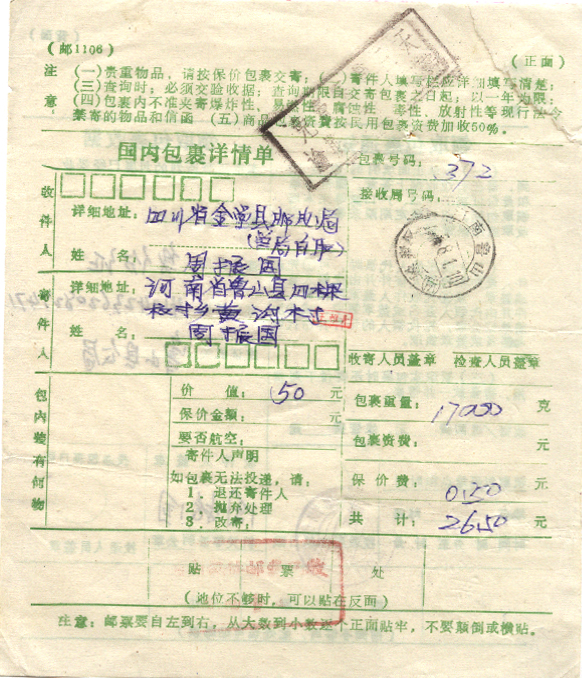 (邮1106)
(正面)
注意
(一)贵重物品，请按保价包裹交寄；(二)寄件人填写栏应详细填写清楚；
(三)查询时；必须交验收据；查询期限自交寄包裹之日起；以一年为限；
(四)包裹内不准夹寄爆炸性、易燃性、腐蚀性、毒性、放射性等现行法令
禁寄的物品和信函 (五)商品包裹资费按民用包裹资费加收50%.
国内包裹详情单
包裹号码：372
接收局号码：
收件人
详细地址：四川省金堂县邮电局
姓名：周振国
寄件人
详细地址：河南省鲁山县四棵
姓名：周振国
收寄人员盖章 检查人员盖章
包内装有何物
价值：50元
保价金额：元
要否航空：
寄件人声明
如包裹无法投递，请：
1．退还寄件人
2．抛弃处理
3．改寄：
包裹重量：17000克
包裹资费：元
保价费：0.50元
共计：26.50元
贴票处
(地位不够时，可以贴在反面)
注意：邮票要自左到右，从大数到小数逐个正面贴牢，不要颠倒或横贴。